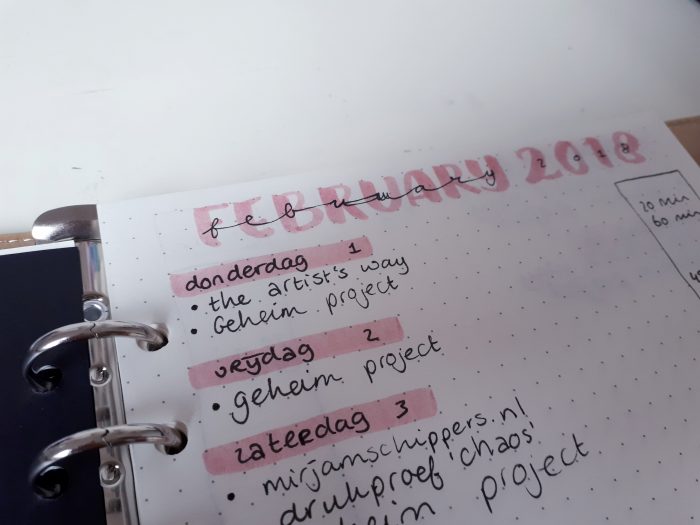 FEBRUARY 2018
february 2018
donderdag 1
• the artist's way
• Geheim project
vrijdag 2
• geheim project
zaterdag 3
• mirjamschippers.nl
drukproef 'chaos'
project
20 min
60 min